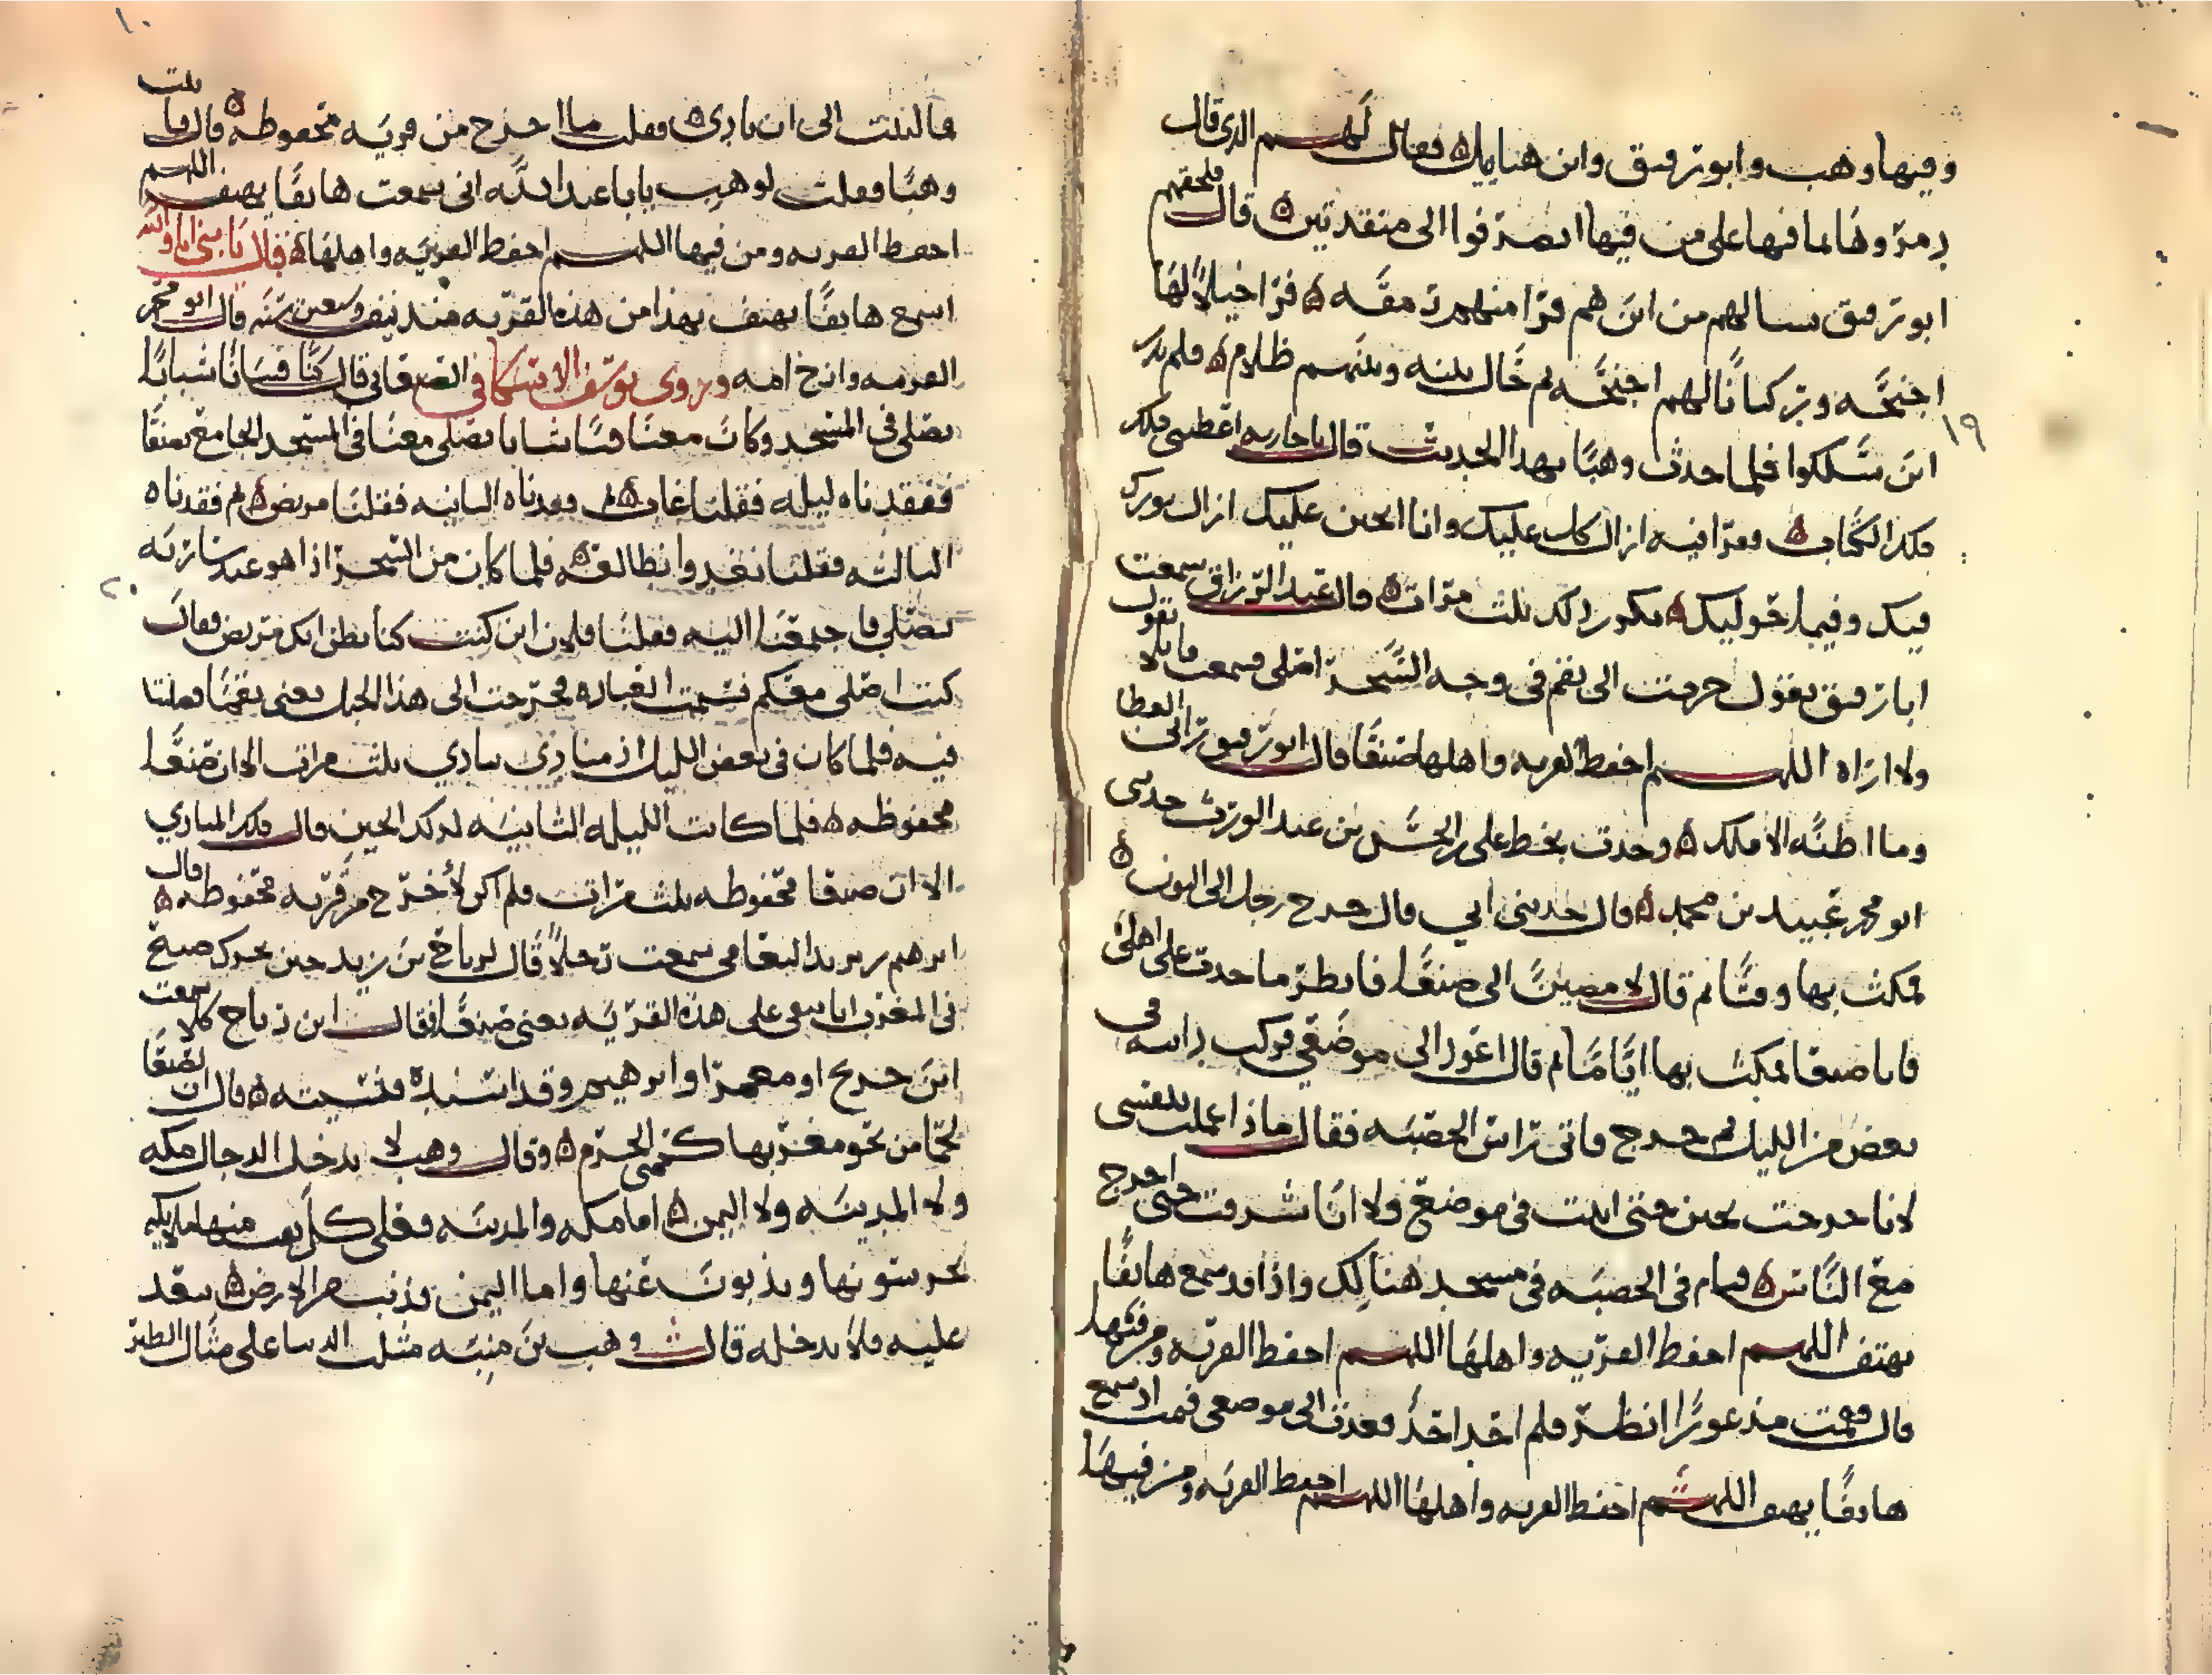 وفيها وهب وابو رفيق وابن هنايك فقال لهم الذي قال
دمروها لما فيها على من فيها انصرفوا الى منقدتين قال فلحقهم
ابو رفيق فسالهم من اين هم فرا منهم رمقه فرا خيلا لها
اجنحه وركبانا لهم اجنحه ثم حال بينه وبينهم ظلام فلم يدر
١٩
اين سلكوا فلما حدث وهبا بهذا الحديث قال يا جاريه اعطيني ملك
الكتاب فقرا فيه ازال كل عليك وانا اتحنن عليك ازال بورك
فيك وفيما حوليك يكرر ذلك ثلث مرات قال عبد الرزاق سمعت
ابا رفيق يقول خرجت الى نقم في وجه السحر اصلي فسمعت قايلا يقول
ولا اراه اللهم احفظ القريه واهلها صنعا قال ابو رفيق العطا
وما اظنه الا ملك وجدت بخط علي بن الحسن بن عبد الورث حدثني
ابو محمد عبيد بن محمد قال حدثني ابي قال خرج رجل الى البون
فمكث بها وقتا ثم قال لامضين الى صنعا فانظر ما حدث على اهلي
فاتا صنعا فمكث بها اياما ثم قال اعود الى موضعي فركب راسه في
بعض من الليل ثم خرج فاتى راس الحصبه فقال ماذا عملت بنفسي
لا انا خرجت بحين حتى ابيت في موضع ولا انا شرقت حتى اخرج
مع الناس فنام في الحصبه في مسجد هنالك واذا قد سمع هاتفا
يهتف اللهم احفظ القريه واهلها اللهم احفظ القريه ومن فيها
قال فقمت مذعورا انظر فلم اجد احدا فعدت الى موضعي فنمت اذ سمع
هاتفا يهتف اللهم احفظ القريه واهلها اللهم احفظ القريه ومن فيها
١٠
فالتفت الى ان نادى فقلت ما اخرج من قريه محفوظه قال فاتيت
وهبا فقلت لوهب يابا عبد الله اني سمعت هاتفا يهتف اللهم
احفظ القريه ومن فيها اللهم احفظ القريه واهلها فقال يا بني انا والله
اسمع هاتفا يهتف بهذا من هذه القريه منذ نيف وسبعين سنه قال ابو محمد
القريه وادخ امه وروى يوسف الافتكافي الصنعاني قال كنا فتيانا شبابا
نصلي في المسجد وكان معنا فتا شابا يصلي معنا في المسجد الجامع بصنعا
ففقدناه ليله فقلنا غاب ثم فقدناه الثانيه فقلنا مريض ثم فقدناه
الثالثه فقلنا نغدوا نطالعه فلما كان من السحر اذا هو عند ساريه
٢٠
يصلي فاجمعنا اليه فقلنا فلان اين كنت كنا نظن انك مريض فقال
كنت اصلي معكم فسمت العباده فخرجت الى هذا الجبل يعني نقما فقلنا
فيه فلما كان في بعض الليل اذ منادي ينادي ثلث مرات الا ان صنعا
محفوظه فلما كانت الليله الثانيه لذلك الحين قال ملك المنادي
الا ان صنعا محفوظه ثلث مرات فلم اكن لأخرج من قريه محفوظه قال
ابرهيم بن يزيد الثقامي سمعت رجلا قال لرباح بن زيد حين تحرك صيح
في المغرب انا نبقى على هذه القريه يعني صنعا فقال ابن رباح كلا سمعت
ابن جريج او معمرا وابرهيم وقد اثبته فنسيته قال ان لصنعا
لحما من نحو مغربها كحمى الحرم وقال وهب لا يدخل الدجال مكه
ولا المدينه ولا اليمن اما مكه والمدينه فعلى كل نقب منها ملايكه
يحرسونها ويذبون عنها واما اليمن فذنب من الارض يبعد
عليه فلا يدخله قال وهب بن منبه مثلت الدنيا على مثال الطير